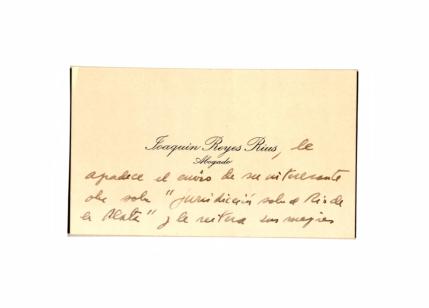 Joaquin Reyes Rius, le
Abogado
agradece el envío de su interesante
obra sobre "jurisdicción sobre el Río de
la Plata" y le reitera sus mejores